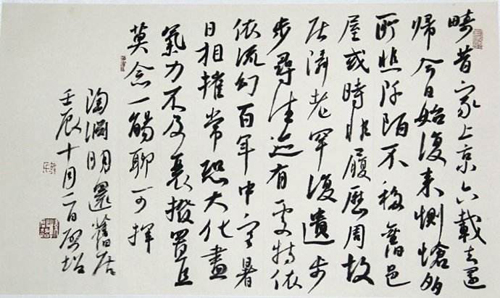 疇昔家上京六載去還
歸今日始復来惻愴多
所悲阡陌不移舊邑
屋或時非履歷周故
居鄰老罕復遺步
步尋往迹有處特依
依流幻百年中寒暑
日相摧常恐大化盡
氣力不及衰撥置且
莫念一觴聊可揮
陶淵明還舊居
壬辰十月